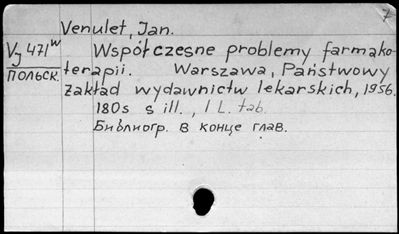 7
Venulet, Jan.
VJ 471w Współczesne problemy farmako-
польск. terapii. Warszawa, Państwowy
zakład wydawnictw lekarskich, 1956.
180s s ill., 1 L. tab.
Библиогр. в конце глав.